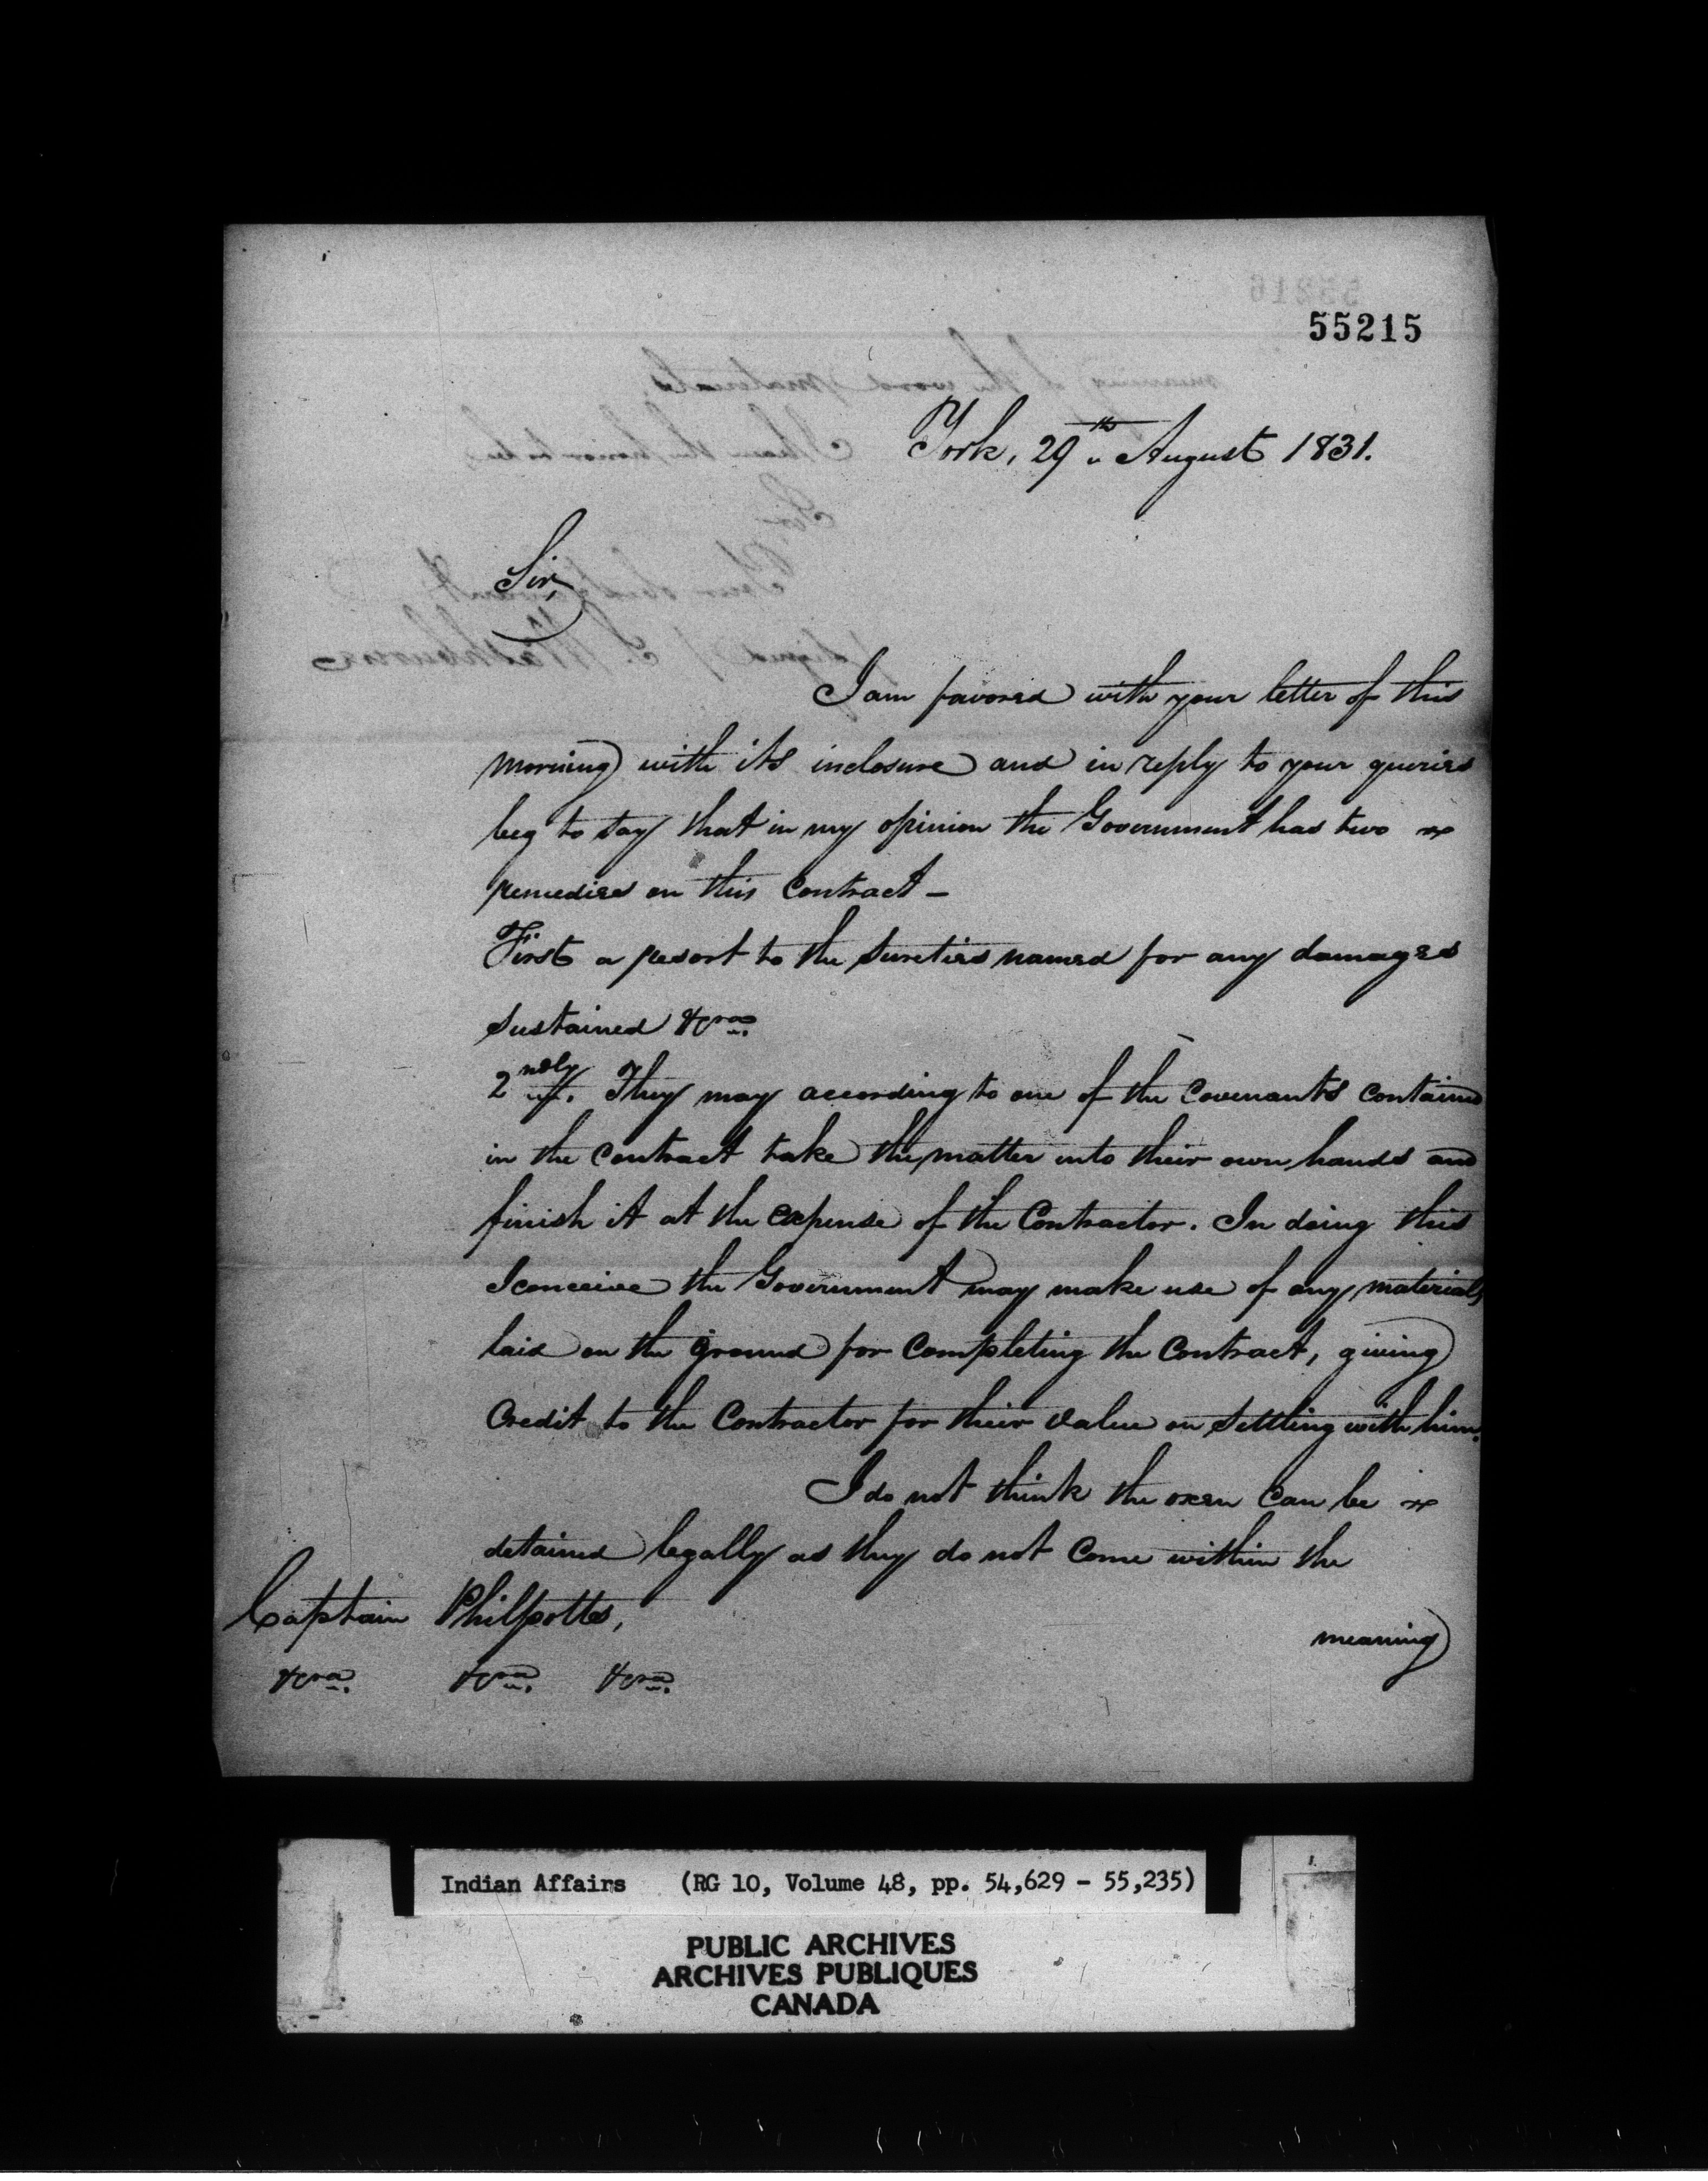 55215
York, 29th August 1831.
Sir,
I am favored with your letter of this
morning with its inclosure and in reply to your queries
beg to say that in my opinion the Government has two
remedies on this Contract —
First a resort to the Sureties named for any damages
sustained &cra.
2ndly. They may according to one of the Covenants contained
in the Contract take the matter into their own hands and
finish it at the expense of the Contractor. In doing this
I conceive the Government may make use of any materials
laid on the ground for Completing the Contract, giving
Credit to the Contractor for their value on Settling with him.
I do not think the oxen can be
detained legally as they do not Come within the
meaning
Captain Philpotts,
&cra. &cra. &cra.
Indian Affairs (RG 10, Volume 48, pp. 54,629 - 55,235)
PUBLIC ARCHIVES
ARCHIVES PUBLIQUES
CANADA